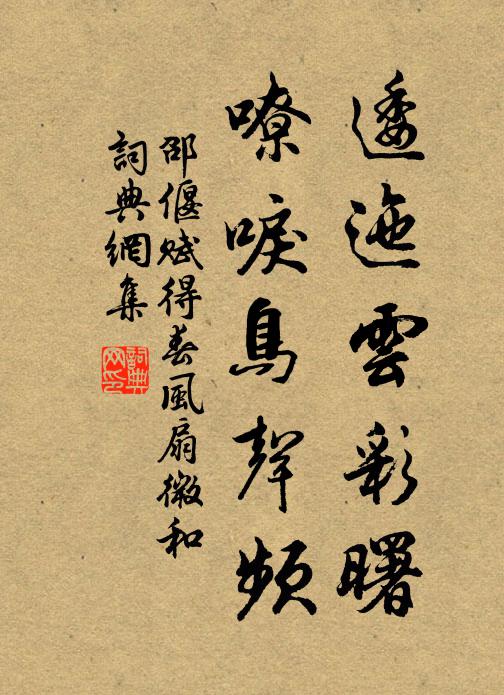 逶迤雲彩曙
嘹唳鳥聲頻
邵偃賦得春風扇微和
詞典網集
詞典網印